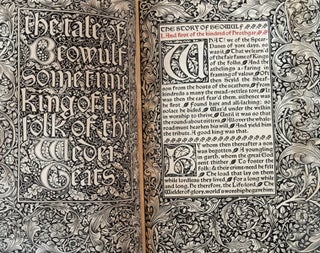 the tale of
Beowulf
sometime
king of the
folk of the
Weder
Geats
THE STORY OF BEOWULF
I. And first of the kindred of Hrothgar.
WHAT! we of the Spear-
Danes of yore days, so
was it
That we learn'd
of the fair fame of kings
of the folks
And the
athelings a-faring in
framing of valour.
Oft then Scyld the Sheaf-
son from the hosts of the scathers,
From
kindreds a many the mead-settles tore;
It
was then the earl fear'd them, sithence was
he first
Found bare and all-lacking; so
solace he bided,
Wax'd under the welkin
in worship to thrive,
Until it was so that
the round-about sitters
All over the whale-
road must hearken his will
And yield him
the tribute. A good king was that.
By whom then thereafter a son
was begotten,
A youngling
in garth, whom the great God
sent thither
To foster the
folk; & their crime-need he felt
The load that lay on them
while lordless they lived
For a long while
and long. He therefore, the Life-lord,
The
Wielder of glory, world's worship he gave him